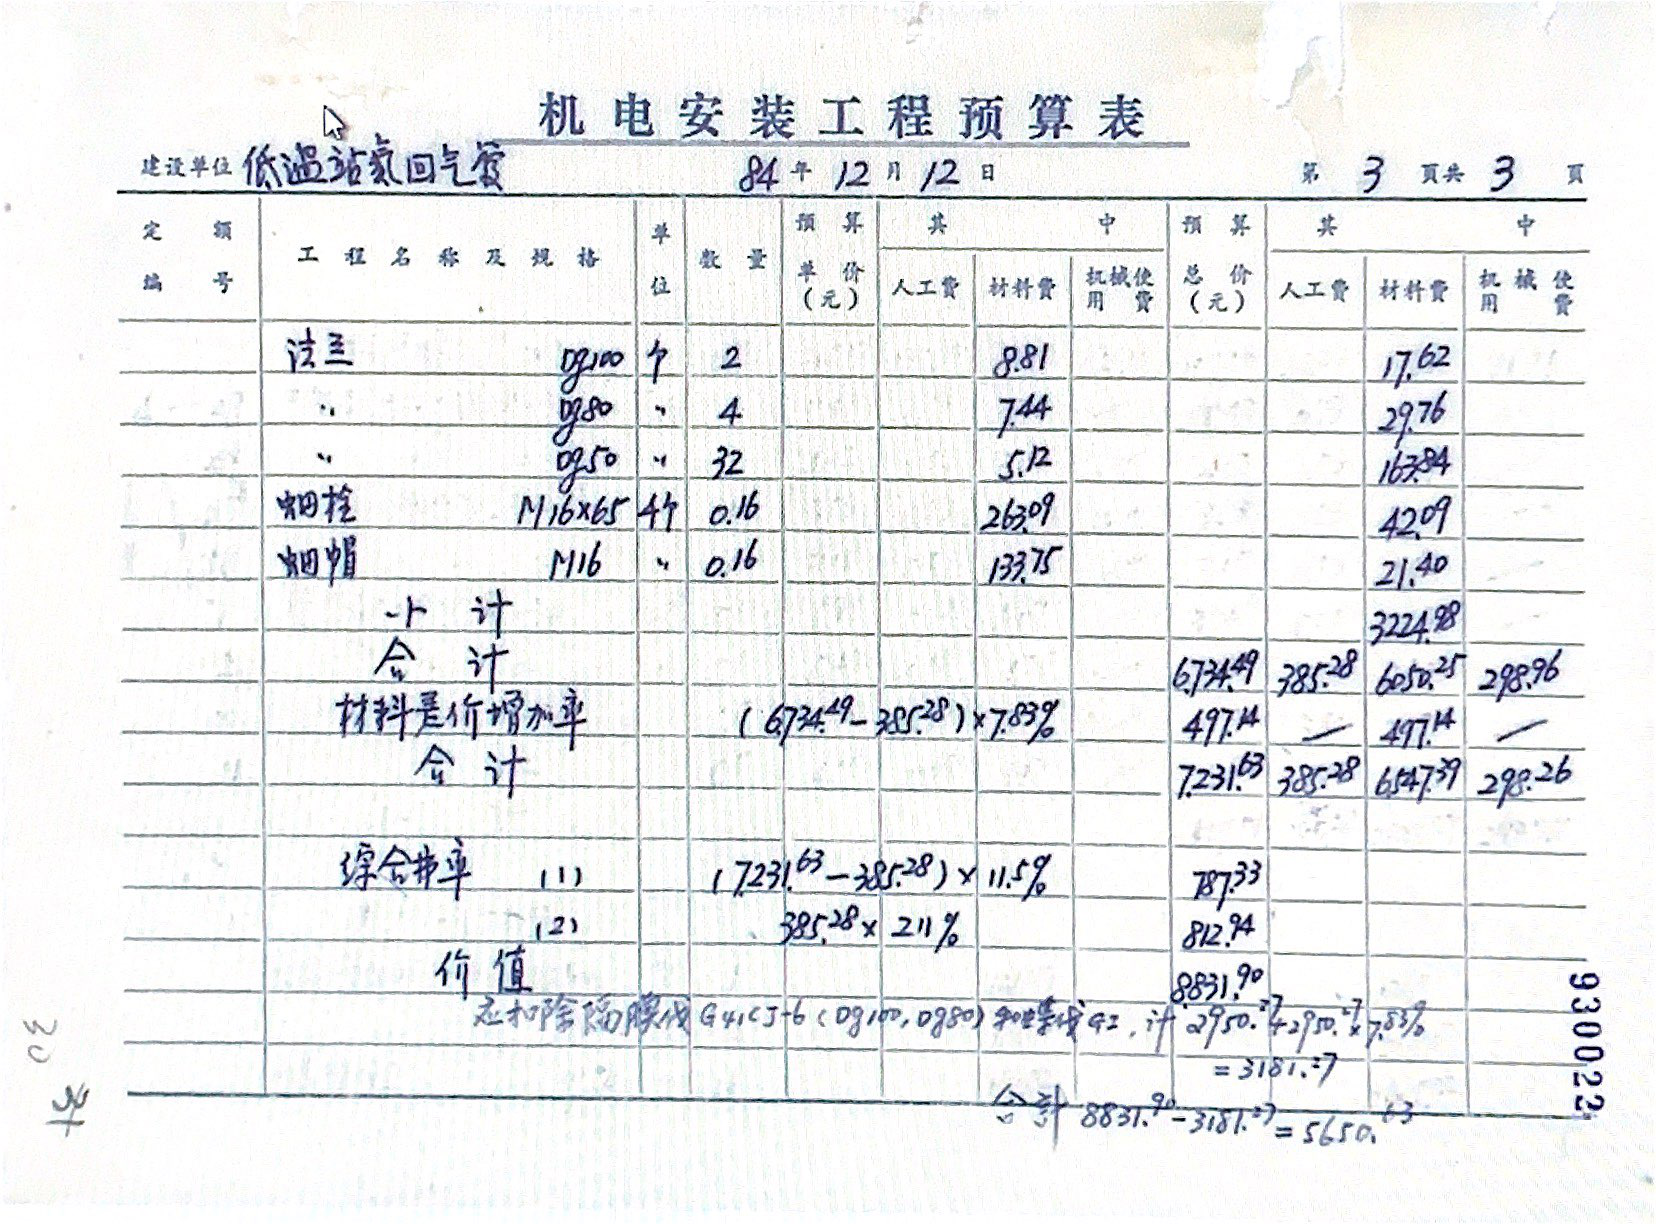 机电安装工程预算表
建设单位 低温站氦回气管 84年12月12日 第3頁共3頁
定额编号 工程名称及规格 单位 数量 预算单价(元) 其中 人工费 材料费 机械使用费 预算总价(元) 其中 人工费 材料费 机械使用费
法兰 Dg100 个 2 8.81 17.62
〃 Dg80 〃 4 7.44 29.76
〃 Dg50 〃 32 5.12 163.84
螺栓 M16×65 千个 0.16 263.09 42.09
螺帽 M16 〃 0.16 133.75 21.40
小计 3224.98
合计 6734.49 385.28 6050.25 298.96
材料差价增加率 (6734.49-385.28)×7.83% 497.14 — 497.14 —
合计 7231.63 385.28 6547.39 298.26
综合费率 (1) (7231.63-385.28)×11.5% 787.33
(2) 385.28×211% 812.94
价值 8831.90
应扣除隔膜阀G41CJ-6(Dg100,Dg80) 计 2950.27+2950.27×7.83%
=3181.27
合计 8831.90-3181.27=5650.63
930022
30